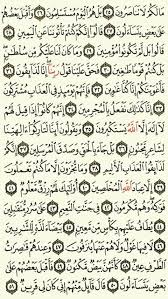 مَا لَكُمْ لَا تَنَاصَرُونَ ٢٥ بَلْ هُمُ الْيَوْمَ مُسْتَسْلِمُونَ ٢٦ وَأَقْبَلَ بَعْضُهُمْ
عَلَىٰ بَعْضٍ يَتَسَاءَلُونَ ٢٧ قَالُوا إِنَّكُمْ كُنتُمْ تَأْتُونَنَا عَنِ الْيَمِينِ ٢٨
قَالُوا بَل لَّمْ تَكُونُوا مُؤْمِنِينَ ٢٩ وَمَا كَانَ لَنَا عَلَيْكُم مِّن سُلْطَانٍ
بَلْ كُنتُمْ قَوْمًا طَاغِينَ ٣٠ فَحَقَّ عَلَيْنَا قَوْلُ رَبِّنَا إِنَّا لَذَائِقُونَ ٣١
فَأَغْوَيْنَاكُمْ إِنَّا كُنَّا غَاوِينَ ٣٢ فَإِنَّهُمْ يَوْمَئِذٍ فِي الْعَذَابِ
مُشْتَرِكُونَ ٣٣ إِنَّا كَذَٰلِكَ نَفْعَلُ بِالْمُجْرِمِينَ ٣٤ إِنَّهُمْ كَانُوا
إِذَا قِيلَ لَهُمْ لَا إِلَٰهَ إِلَّا اللَّهُ يَسْتَكْبِرُونَ ٣٥ وَيَقُولُونَ أَئِنَّا
لَتَارِكُو آلِهَتِنَا لِشَاعِرٍ مَّجْنُونٍ ٣٦ بَلْ جَاءَ بِالْحَقِّ وَصَدَّقَ الْمُرْسَلِينَ ٣٧
إِنَّكُمْ لَذَائِقُو الْعَذَابِ الْأَلِيمِ ٣٨ وَمَا تُجْزَوْنَ إِلَّا مَا كُنتُمْ تَعْمَلُونَ ٣٩
إِلَّا عِبَادَ اللَّهِ الْمُخْلَصِينَ ٤٠ أُولَٰئِكَ لَهُمْ رِزْقٌ مَّعْلُومٌ ٤١
فَوَاكِهُ وَهُم مُّكْرَمُونَ ٤٢ فِي جَنَّاتِ النَّعِيمِ ٤٣ عَلَىٰ سُرُرٍ مُّتَقَابِلِينَ ٤٤
يُطَافُ عَلَيْهِم بِكَأْسٍ مِّن مَّعِينٍ ٤٥ بَيْضَاءَ لَذَّةٍ لِّلشَّارِبِينَ ٤٦
لَا فِيهَا غَوْلٌ وَلَا هُمْ عَنْهَا يُنزَفُونَ ٤٧ وَعِندَهُمْ قَاصِرَاتُ
الطَّرْفِ عِينٌ ٤٨ كَأَنَّهُنَّ بَيْضٌ مَّكْنُونٌ ٤٩ فَأَقْبَلَ بَعْضُهُمْ
عَلَىٰ بَعْضٍ يَتَسَاءَلُونَ ٥٠ قَالَ قَائِلٌ مِّنْهُمْ إِنِّي كَانَ لِي قَرِينٌ ٥١